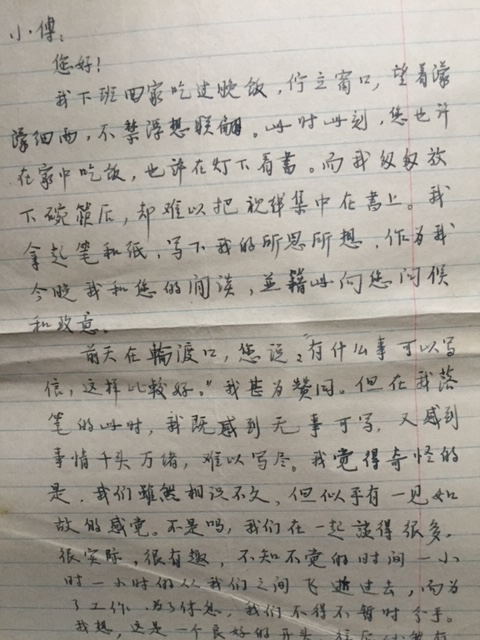 小傅：
您好！
我下班回家吃过晚饭，伫立窗口，望着濛
濛细雨，不禁浮想联翩。此时此刻，您也许
在家中吃饭，也许在灯下看書。而我匆匆放
下碗筷后，却难以把视线集中在書上。我
拿起笔和纸，写下我的所思所想，作为我
今晚我和您的闲谈，並籍此向您问候
和致意。
前天在輪渡口，您说："有什么事可以写
信，这样比较好。"我甚为赞同。但在我落
笔的此时，我既感到无事可写，又感到
事情千头万绪，难以写尽。我觉得奇怪的
是，我们雖然相识不久，但似乎有一见如
故的感觉。不是吗，我们在一起談得很多，
很实际，很有趣，不知不觉的时间一小
时一小时的从我们之间飞逝过去，而为
了工作，为了休息，我们不得不暂时分手。
我想，这是一个良好的开头，